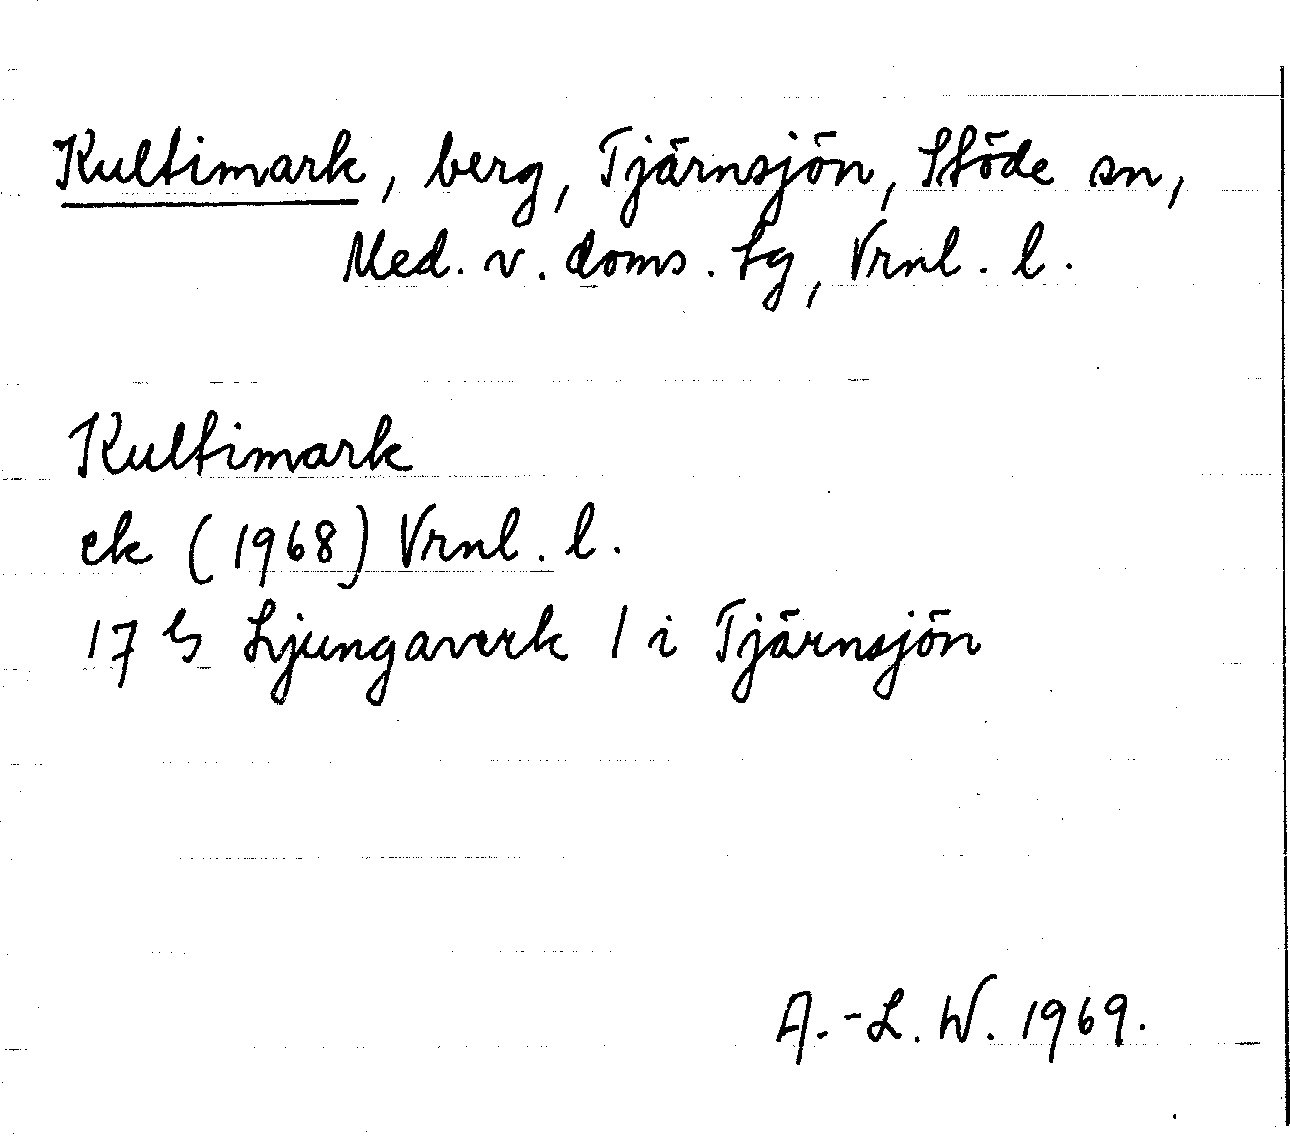 Kultimark, berg, Tjärnsjön, Stöde sn,
Med. v. doms. tg, Vrnl. l.
Kultimark
ek (1968) Vrnl. l.
17 Ljungaverk 1 i Tjärnsjön
A.-L. W. 1969.